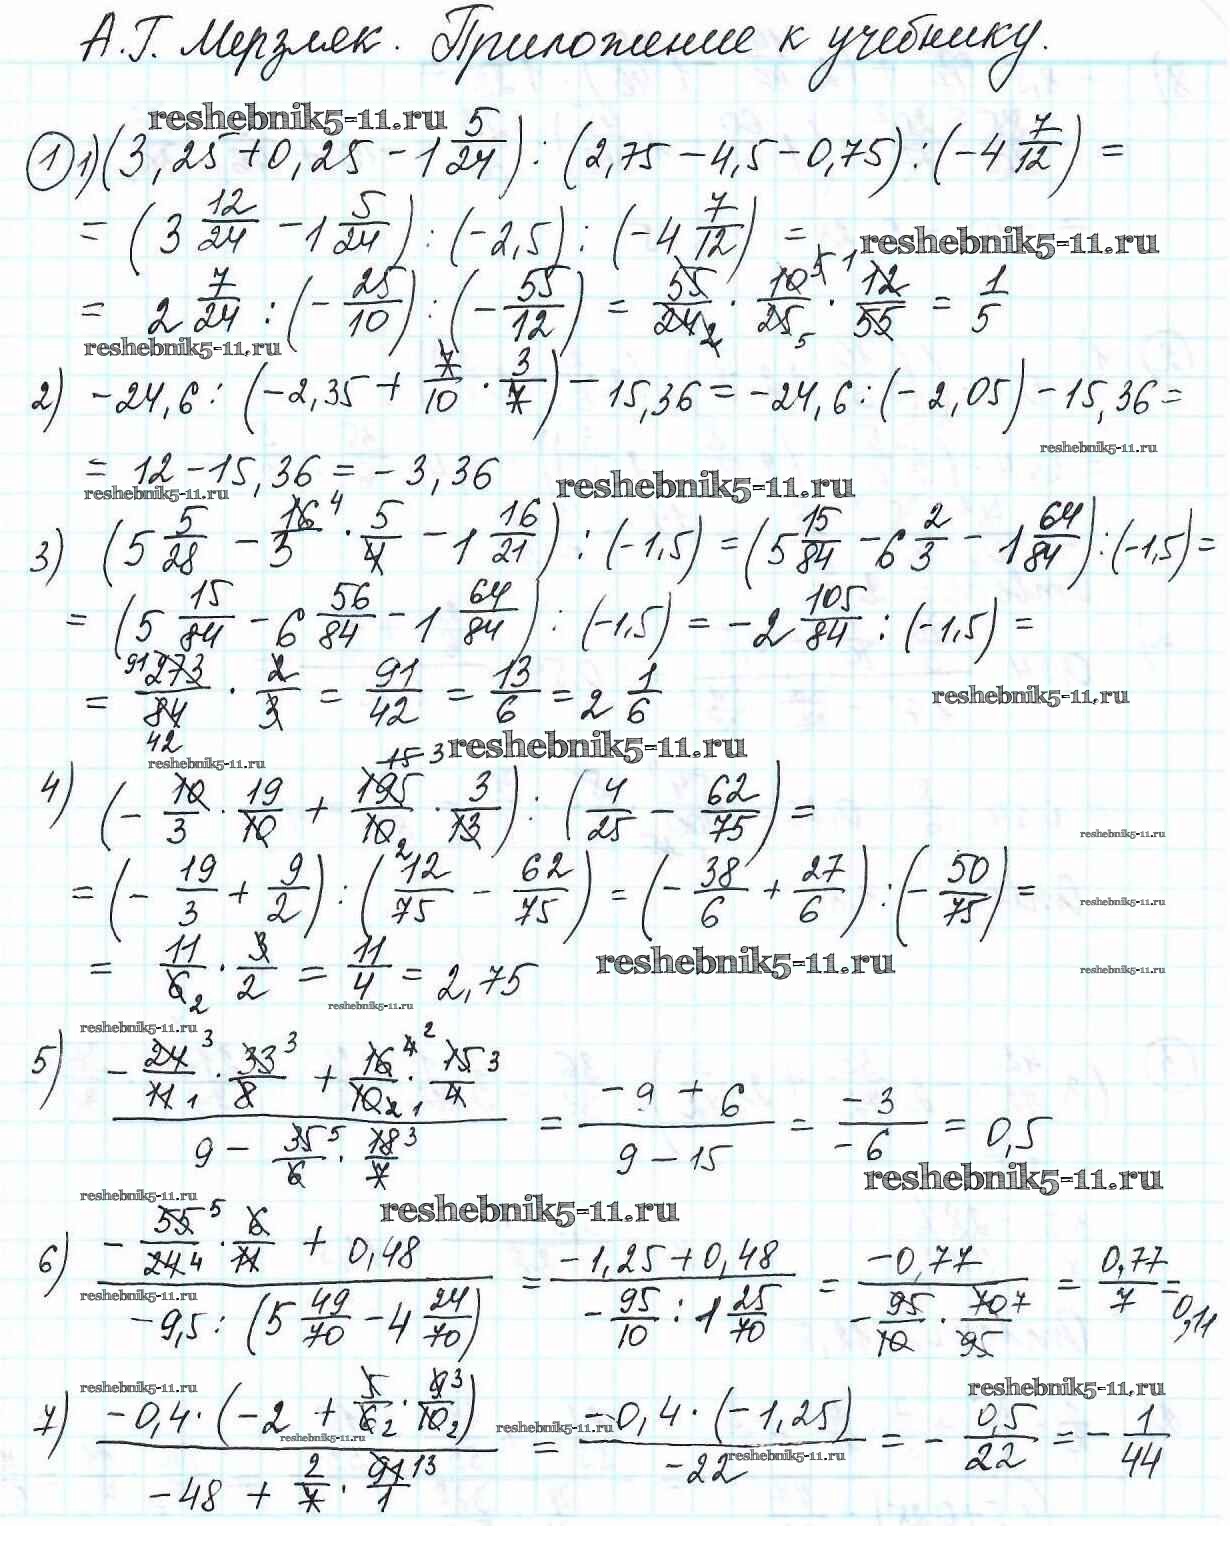 А.Г. Мерзляк. Приложение к учебнику.
reshebnik5-11.ru
① 1) (3,25 + 0,25 − 1 5/24) : (2,75 − 4,5 − 0,75) : (−4 7/12) =
= (3 12/24 − 1 5/24) : (−2,5) : (−4 7/12) =
reshebnik5-11.ru
= 2 7/24 : (−25/10) : (−55/12) = 55/24 2 · 10 5/25 5 · 12 1/55 = 1/5
reshebnik5-11.ru
2) −24,6 : (−2,35 + 7/10 · 3/7) − 15,36 = −24,6 : (−2,05) − 15,36 =
reshebnik5-11.ru
= 12 − 15,36 = −3,36
reshebnik5-11.ru
reshebnik5-11.ru
3) (5 5/28 − 16 4/3 · 5/4 − 1 16/21) : (−1,5) = (5 15/84 − 6 2/3 − 1 64/84) : (−1,5) =
= (5 15/84 − 6 56/84 − 1 64/84) : (−1,5) = −2 105/84 : (−1,5) =
= 91 273/84 42 · 2/3 = 91/42 = 13/6 = 2 1/6
reshebnik5-11.ru
reshebnik5-11.ru
reshebnik5-11.ru
4) (−10/3 · 19/10 + 195 15 3/10 2 · 3/13) : (4/25 − 62/75) =
reshebnik5-11.ru
= (−19/3 + 9/2) : (12/75 − 62/75) = (−38/6 + 27/6) : (−50/75) =
reshebnik5-11.ru
= 11/6 2 · 3/2 = 11/4 = 2,75
reshebnik5-11.ru
reshebnik5-11.ru
reshebnik5-11.ru
reshebnik5-11.ru
5) −24 3/11 1 · 33 3/8 + 16 4 2/10 2 1 · 15 3/4
9 − 35 5/6 · 18 3/7
= −9 + 6/9 − 15 = −3/−6 = 0,5
reshebnik5-11.ru
reshebnik5-11.ru
reshebnik5-11.ru
6) −55 5/24 4 · 6/11 + 0,48
−9,5 : (5 49/70 − 4 24/70)
= −1,25 + 0,48/−95/10 : 1 25/70 = −0,77/−95/10 · 70 7/95 = 0,77/7 = 0,11
reshebnik5-11.ru
reshebnik5-11.ru
reshebnik5-11.ru
7) −0,4 · (−2 + 5/6 2 · 9 3/10 2)
−48 + 2/7 · 91 13/1
= −0,4 · (−1,25)/−22 = −0,5/22 = −1/44
reshebnik5-11.ru
reshebnik5-11.ru
reshebnik5-11.ru